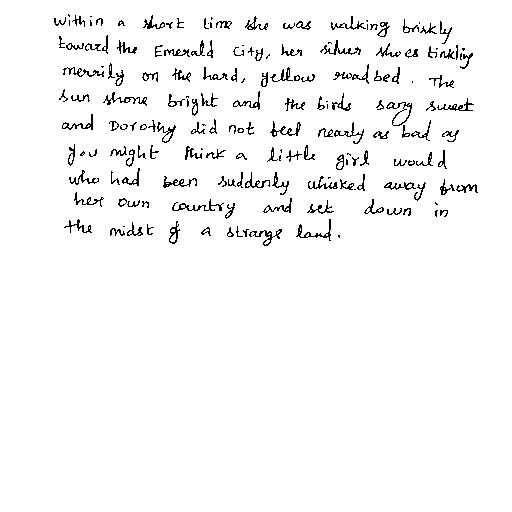 within a short time she was walking briskly
toward the Emerald City, her silver shoes tinkling
merrily on the hard, yellow roadbed. The
sun shone bright and the birds sang sweet
and Dorothy did not feel nearly as bad as
you might think a little girl would
who had been suddenly whisked away from
her own country and set down in
the midst of a strange land.